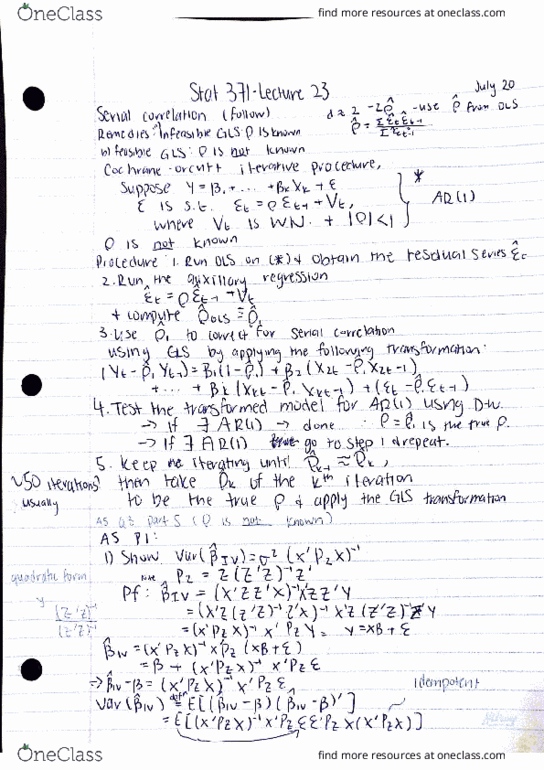 OneClass
find more resources at oneclass.com
Stat 371-Lecture 23
July 20
Serial correlation (follow) d ≈ 2 - 2ρ̂ - use ρ̂ from OLS
Remedies: Infeasible GLS: ρ is known ρ̂ = Σε̂tε̂t-1 / Σε̂²t-1
ii) feasible GLS: ρ is not known
Cochrane-orcutt iterative procedure,
Suppose Y = B1 + ... + BkXk + ε
ε is s.t. εt = ρεt-1 + Vt, * AR(1)
where Vt is WN. + |ρ|<1
ρ is not known
Procedure 1. Run OLS on (*) & obtain the residual series ε̂t
2. Run the auxillary regression
ε̂t = ρε̂t-1 + Vt
+ compute ρ̂OLS ≡ ρ̂1
3. Use ρ̂1 to correct for serial correlation
using GLS by applying the following transformation:
(Yt - ρ̂1Yt-1) = B1(1-ρ̂1) + B2(X2t - ρ̂1X2t-1)
+ ... + Bk(Xkt - ρ̂1Xkt-1) + (εt - ρ̂1εt-1)
4. Test the transformed model for AR(1) using D.W.
→ If ∄ AR(1) → done ∴ ρ̂ = ρ̂1 is the true ρ.
→ If ∃ AR(1) go to step 1 & repeat.
5. Keep iterating until ρ̂k-1 ≈ ρ̂k,
~50 iterations usually
then take ρ̂k of the kth iteration
to be the true ρ & apply the GLS transformation
AS Q3 part 5 (ρ is not known)
AS P1:
1) Show Var(β̂IV) = σ²(X'PzX)⁻¹
quadratic form
Note Pz = Z(Z'Z)⁻¹Z'
Pf: β̂IV = (X'ZZ'X)⁻¹X'ZZ'Y
(Z'Z)⁻¹
(Z'Z)⁻¹
= (X'Z(Z'Z)⁻¹Z'X)⁻¹X'Z(Z'Z)⁻¹Z'Y
= (X'PzX)⁻¹X'PzY, Y = XB + ε
β̂IV = (X'PzX)⁻¹X'Pz(XB + ε)
= β + (X'PzX)⁻¹X'Pzε
⇒ β̂IV - β = (X'PzX)⁻¹X'Pzε
idempotent
Var(β̂IV) defn= E[(β̂IV - β)(β̂IV - β)']
= E[(X'PzX)⁻¹X'Pzεε'PzX(X'PzX)]
OneClass
find more resources at oneclass.com